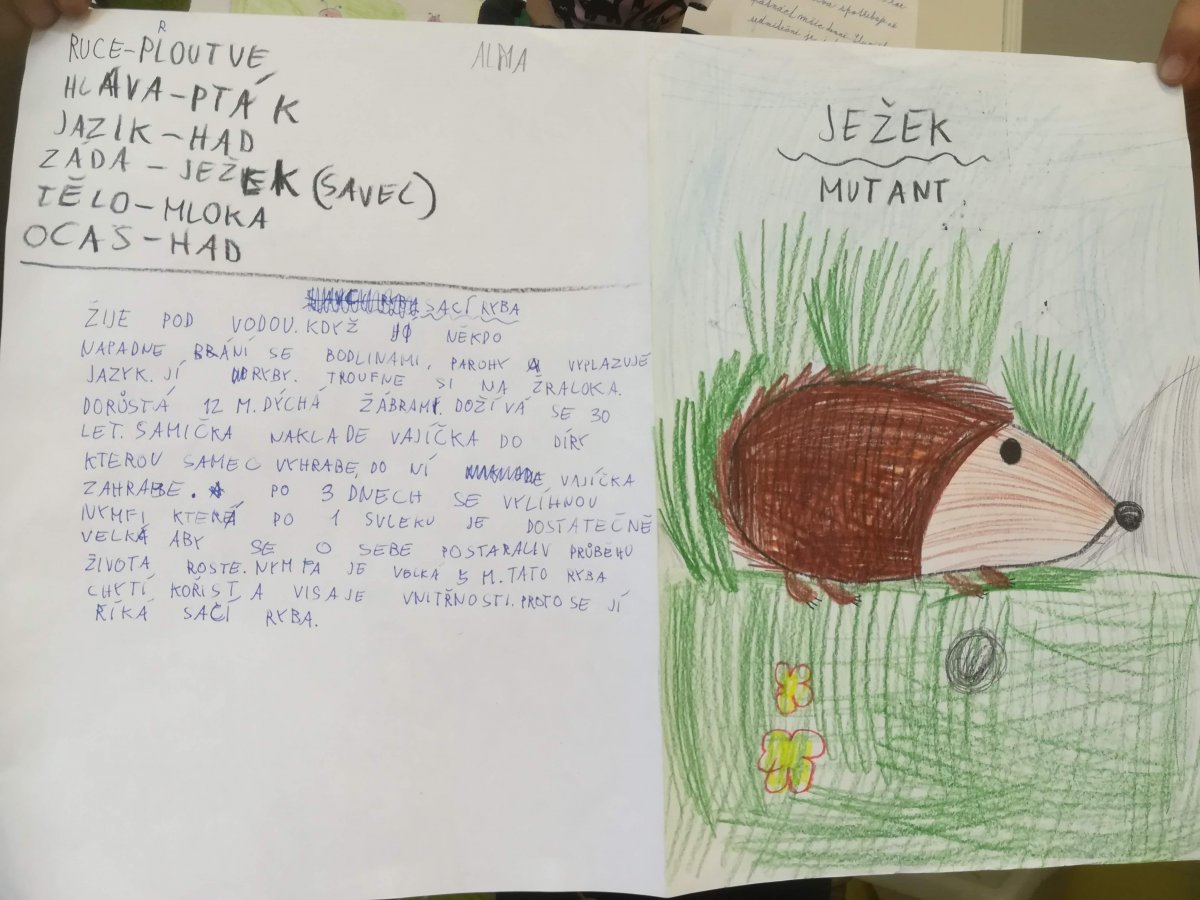 RUCE-PLOUTVE
R
ALMA
HLAVA-PTÁK
JAZIK-HAD
ZÁDA-JEŽEK (SAVEC)
TĚLO-MLOKA
OCAS-HAD
SACÍ RYBA
ŽIJE POD VODOU. KDYŽ JI NĚKDO
NAPADNE BRÁNÍ SE BODLINAMI, PAROHY A VYPLAZUJE
JAZYK. JÍ RYBY. TROUFNE SI NA ŽRALOKA.
DORŮSTÁ 12 M. DÝCHÁ ŽÁBRAMI. DOŽÍVÁ SE 30
LET. SAMIČKA NAKLADE VAJÍČKA DO DÍRY
KTEROU SAMEC VYHRABE, DO NÍ VAJÍČKA
ZAHRABE. PO 3 DNECH SE VYLÍHNOU
NYMFI KTERÁ PO 1 SVLEKU JE DOSTATEČNĚ
VELKÁ ABY SE O SEBE POSTARALI V PRŮBĚHU
ŽIVOTA ROSTE. NYMFA JE VELKÁ 5 M. TATO RYBA
CHYTÍ KOŘIST A VISAJE VNITŘNOSTI. PROTO SE JÍ
ŘÍKÁ SAČÍ RYBA.
JEŽEK
MUTANT